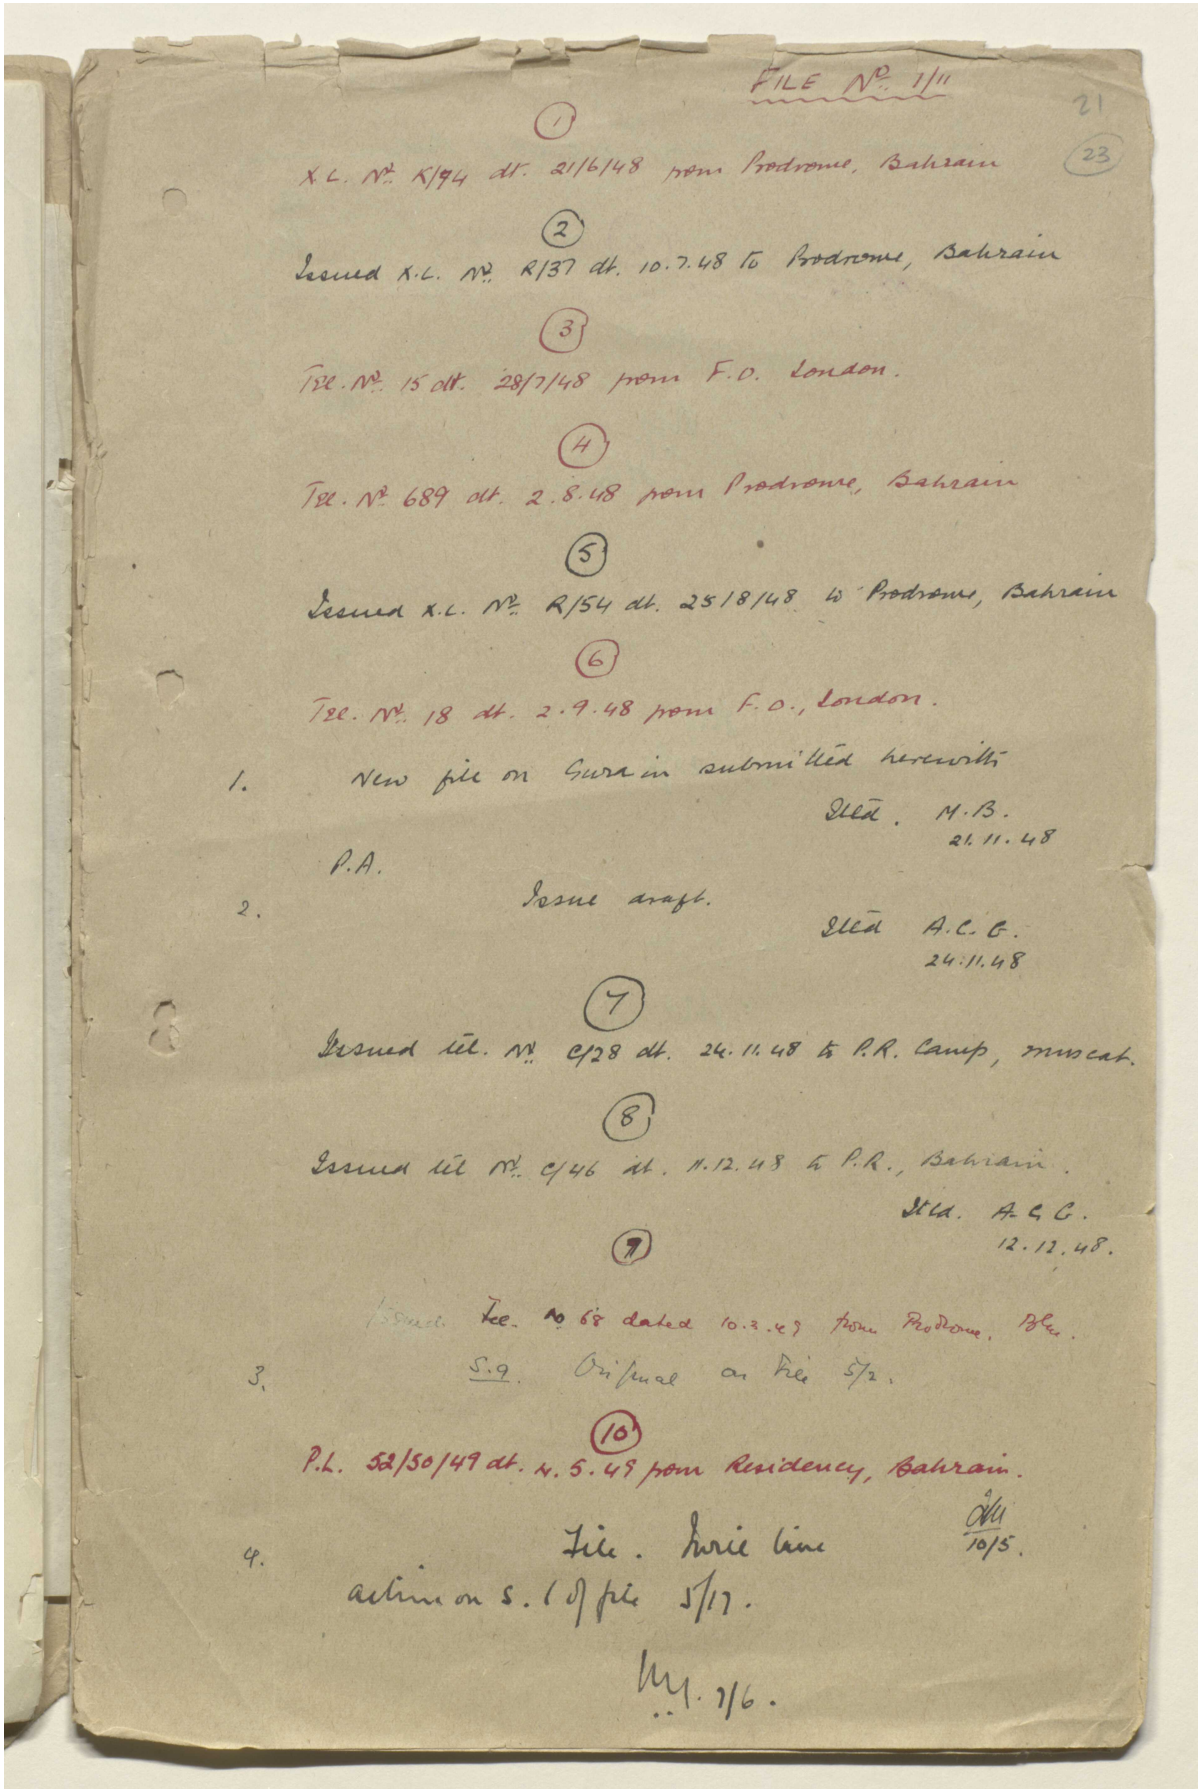 FILE Nº 7/11
21
23
1
X.L. Nº R/94 dt. 21/6/48 from Prodrome, Bahrain
2
Issued X.L. Nº R/37 dt. 10.7.48 to Prodrome, Bahrain
3
Tel. Nº 15 dt. 28/7/48 from F.O. London.
4
Tel. Nº 689 dt. 2.8.48 from Prodrome, Bahrain
5
Issued X.L. Nº R/54 dt. 25/8/48 to Prodrome, Bahrain
6
Tel. Nº 18 dt. 2.9.48 from F.O., London.
1. New file on submitted herewith
Itld. M.B.
21.11.48
P.A.
2. Issue draft.
Itld A.C.G.
24.11.48
7
Issued tel. Nº C/28 dt. 24.11.48 to P.R. Camp, Muscat.
8
Issued tel Nº C/46 dt. 11.12.48 to P.R., Bahrain.
Itld. A.C.G.
12.12.48.
9
Issued Tel. No 68 dated 10.3.49 from Prodrome,
3. S.9. Original on File 5/2.
10
P.L. 52/50/49 dt. 4.5.49 from Residency, Bahrain.
10/5.
4. File.
action on S.1 of file 5/17.
7/6.